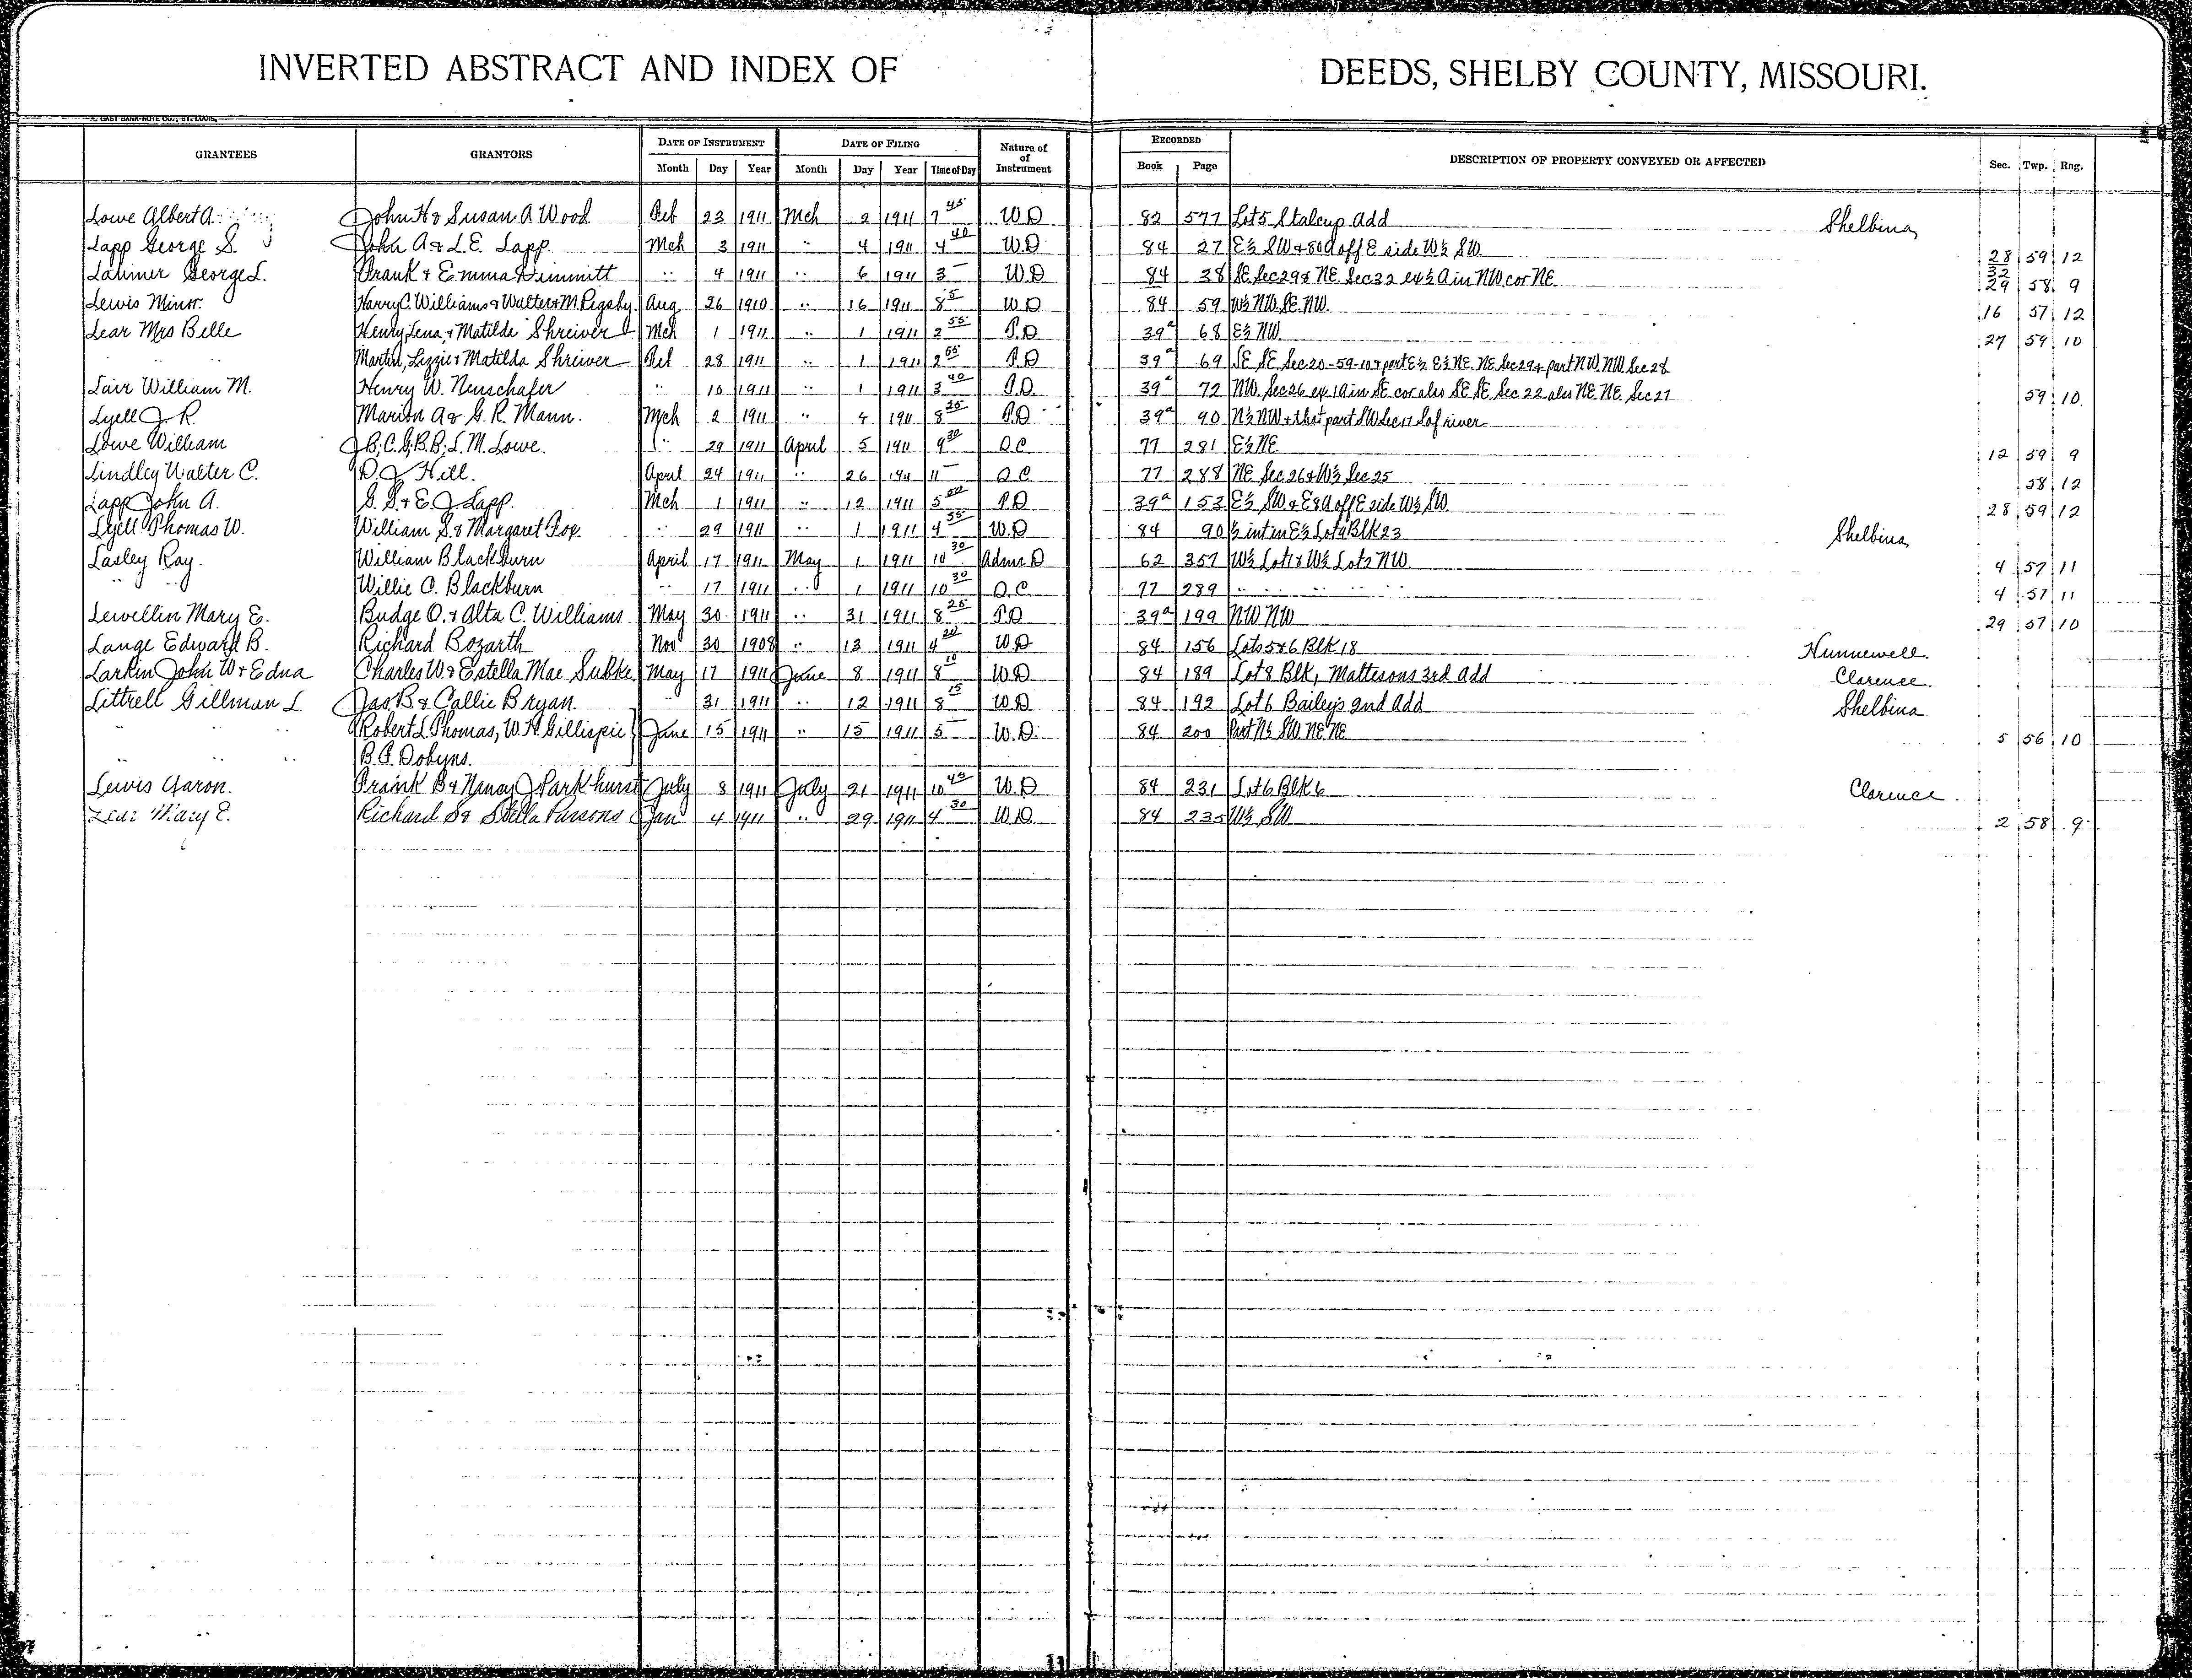 INVERTED ABSTRACT AND INDEX OF DEEDS, SHELBY COUNTY, MISSOURI.
GRANTEES GRANTORS DATE OF INSTRUMENT DATE OF FILING Nature of of Instrument RECORDED DESCRIPTION OF PROPERTY CONVEYED OR AFFECTED Sec. Twp. Rng.
Month Day Year Month Day Year Time of Day Book Page
Lowe Albert A. John H & Susan A Wood Feb 23 1911 Mch 2 1911 7 45 W D 82 577 Lot 5 Stalcup Add Shelbina
Lapp George S. John A & L.E. Lapp. Mch 3 1911 " 4 1911 4 40 W.D. 84 27 E½ SW & 80A off E side W½ SW 28 59 12
Latimer George L. Frank & Emma Dimmitt " 4 1911 " 6 1911 3 — W.D 84 38 SE Sec 29 & NE Sec 32 ex ½ A in NW cor NE 32 29 58 9
Lewis Minor. Harry C. Williams & Walter M Rigsby Aug 26 1910 " 16 1911 8 5 W D 84 59 W½ NW. SE. NW. 16 57 12
Lear Mrs Belle Henry, Lena, & Matilde Shreiver Mch 1 1911 " 1 1911 2 55 T.D 39a 68 E½ NW. 27 59 10
" " " Martin, Lizzie & Matilda Shreiver Feb 28 1911 " 1 1911 2 55 T.D 39a 69 SE SE Sec 20-59-10 & part E½ E½ NE. NE Sec 29 & part NW. NW Sec 28
Lair William M. Henry W. Neuschafer " 10 1911 " 1 1911 3 40 T.D. 39a 72 NW Sec 26 ex 1A in SE cor also SE SE Sec 22 also NE. NE. Sec 27 59 10.
Lyell J. R. Marion A & G. R. Mann. Mch 2 1911 " 4 1911 8 25 T.D 39a 90 N½ NW & that part SW Sec 17 S of river
Lowe William J B; C. G; B.B; L. M. Lowe. " 29 1911 April 5 1911 9 30 Q C 77 281 E½ NE 12 59 9
Lindley Walter C. D. J Hill. April 24 1911 " 26 1911 11 — Q C 77 288 NE Sec 26 & W½ Sec 25 58 12
Lapp John A. G. S. & E. J Lapp. Mch 1 1911 " 12 1911 5 T.D 39a 153 E½ SW & E 8A off E side W½ SW 28 59 12
Lyell Thomas W. William S. & Margaret Fox. " 29 1911 " 1 1911 4 55 W.D 84 90 ½ int in E½ Lot 9 Blk 23 Shelbina
Lasley Ray. William Blackburn April 17 1911 May 1 1911 10 30 Admr D 62 357 W½ Lot 1 & W½ Lot 2 NW 4 57 11
" " Willie O. Blackburn " 17 1911 " 1 1911 10 30 Q.C 77 289 " " " " 4 57 11
Lewellin Mary E. Budge O. & Alta C. Williams May 30 1911 " 31 1911 8 25 T D 39a 199 NW NW 29 57 10
Lange Edward B. Richard Bozarth Nov 30 1908 " 13 1911 4 20 W.D 84 156 Lots 5 & 6 Blk 18 Hunnewell.
Larkin John W & Edna Charles W & Estella Mae Subke May 17 1911 June 8 1911 8 10 W.D 84 189 Lot 8 Blk 1 Mattesons 3rd Add Clarence.
Littrell Gillman L Jas. B & Callie Bryan. " 31 1911 " 12 1911 8 15 W.D 84 192 Lot 6 Bailey's 2nd Add Shelbina
" " " Robert L. Thomas, W. H. Gillispie June 15 1911 " 15 1911 5 — W.D. 84 200 Part N½ SW NE NE 5 56 10
" " " B. F. Dobyns
Lewis Aaron. Frank B & Nancy J Parkhurst July 8 1911 July 21 1911 10 45 W.D 84 231 Lot 6 Blk 6 Clarence
Mary E. Richard S & Stella Parsons Jan 4 1911 " 29 1911 4 30 W.D. 84 235 W½ SW 2 58 9
11